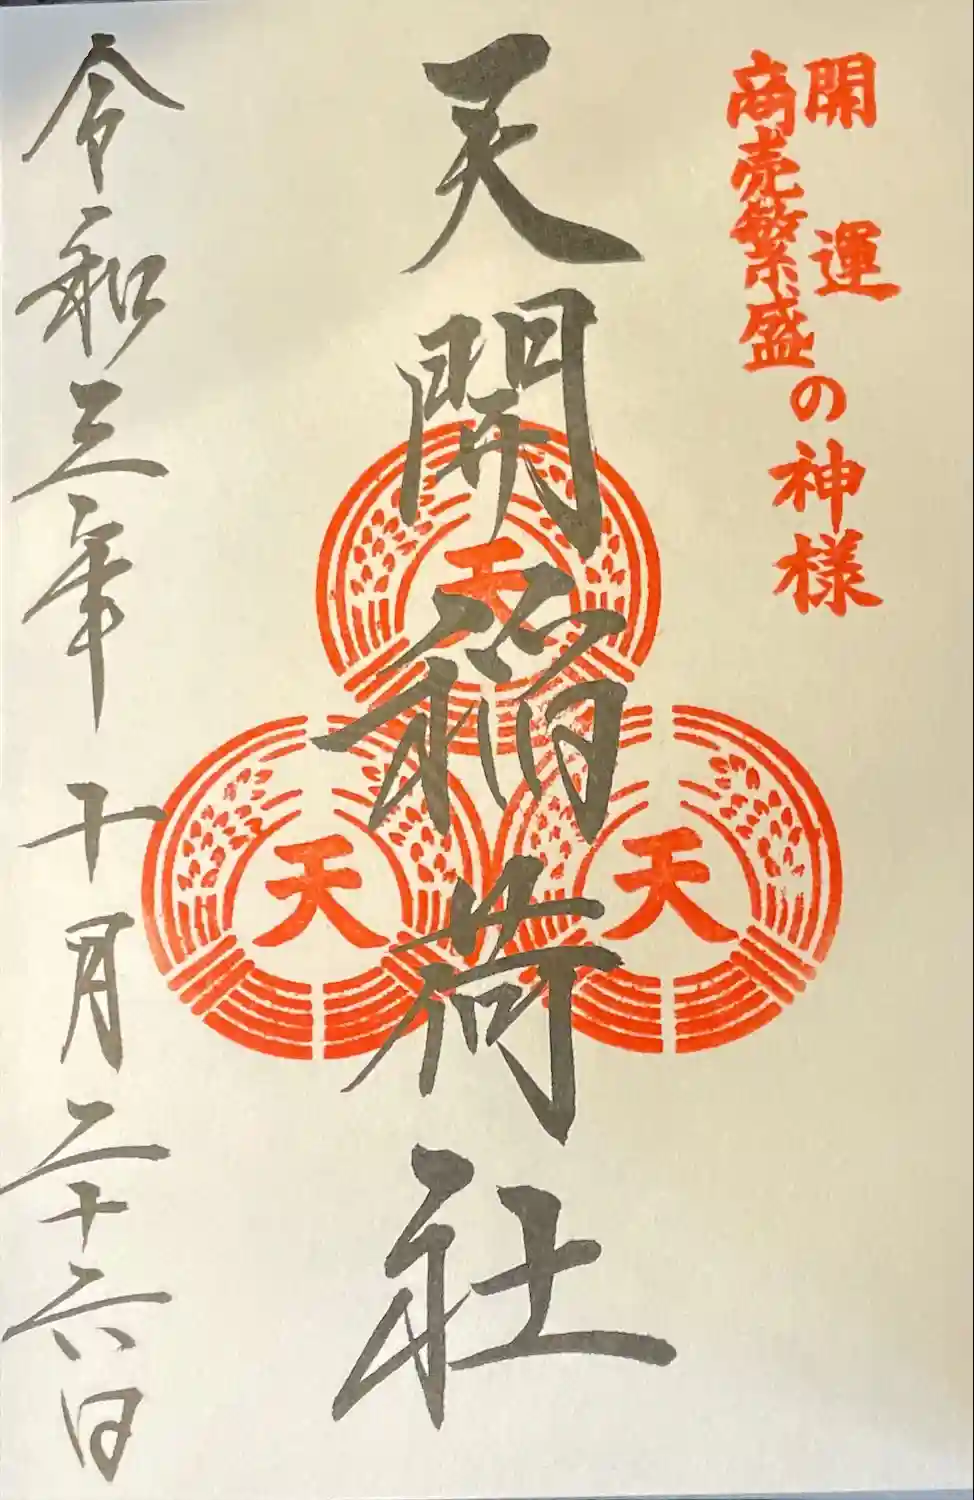 開運
商売繁盛
の神様
天開稲荷社
天
天
天
令和三年十月二十六日